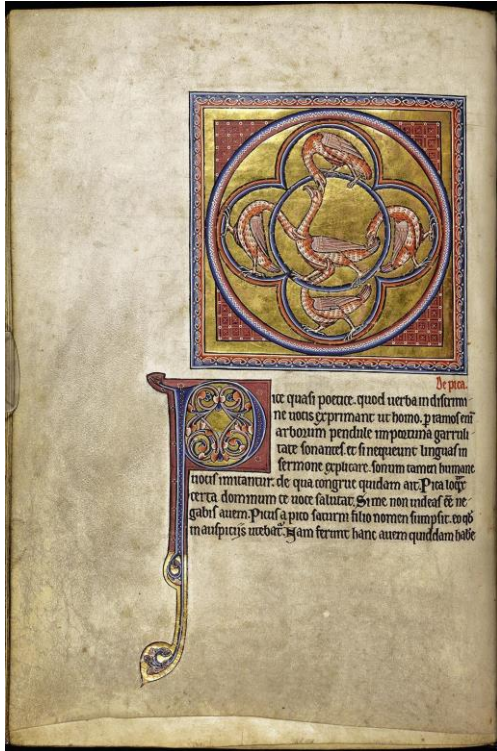 De pica.
Pice quasi poetice. quod uerba in discrimi
ne uocis exprimant ut homo. p ramos eni
arborum pendule importuna garruli
tate sonantes. et si nequeunt linguas in
sermone explicare. sonum tamen humane
uocis imitantur. de qua congrue quidam ait. Pica loqx
certa dominum te uoce saluta. Si me non uideas ee ne
gabis auem. Picus a pico saturni filio nomen sumpsit. eo qd
in auspicijs utebat. Nam ferunt hanc auem quiddam habe